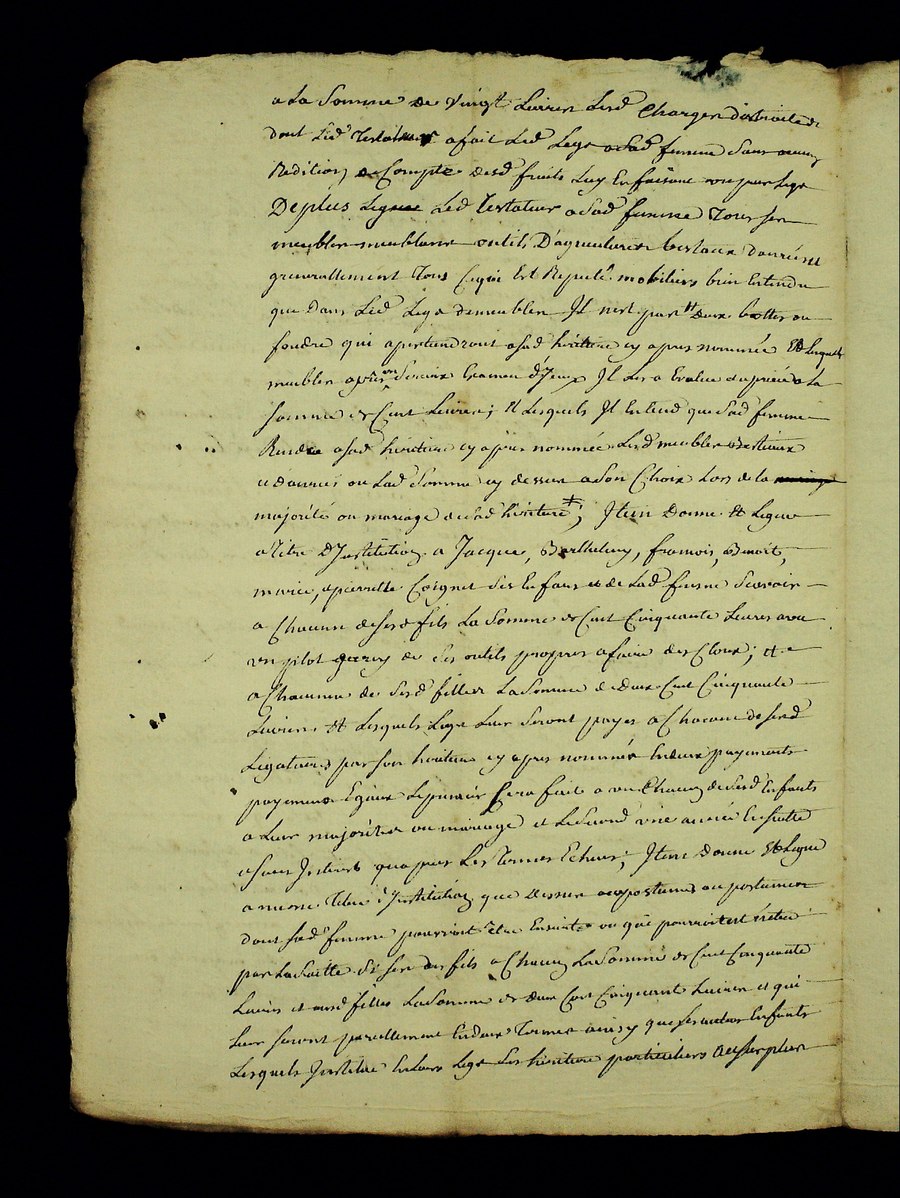 a La Somme de vingt Livres Lesd Charges distraites
dont Led Testateur a fait Led Legs a Sad femme Sans aucun
Redition de Compte desd fruits Luy En faisant
De plus Legue Led Testateur a Sad femme Tous Ses
meubles meublans outils D'agriculture bestaux danrées
generallement Tous Cequi Est Reputé mobiliers bien Entendu
que Dans Led Legs de meubles Il n'est pas Deux bottes ou
foudre qui apartiendront a sad héritiere cy apres nommée Et Lesquels
meubles après Serieux Examen d'Jeux Il Les a Evalué a la
somme de Cent Livres; Et Lesquels Il Entend que Sad femme
Rende a sad héritiere cy après nommée Lesd meubles Bestiaux
danrées ou Lad Somme cy dessus a Son Choix Lors de la
majorité ou mariage de sad héritiere; Item Donne Et Legue
a Titre D'Institution a Jacque, Barthelemy, françois, Benoit,
marie, a pierrette Coignet Ses Enfans et de Lad femme Scavoir
a Chacun de Sesd fils La Somme de Cent Cinquante Livres avec
un pilot garny de Ses outils propres a faire des Cloux; et
a Chacune de Sesd filles La Somme de Deux Cent Cinquante
Livres Et Lesquels Legs Leur Seront payés a Chacun de Sesd
Legataires par Son héritiere cy apres nommée En deux payements
payements Egaux Le premier Sera fait a un Chacun de Sesd Enfants
a Leur majorité ou mariage et Le Second une année En suitte
Sans Interest qu'apres Les Termes Echus; Item Donne Et Legue
a meme Titre d'Institution que Dessus au postume ou postumes
dont Sad femme pourroit être Enceinte ou qui pourroit
par La Suitte Si Son des fils a Chacun La Somme de Cent Cinquante
Livres et aux filles La Somme de deux Cent Cinquante Livres et qui
Leur Seront pareillement En deux Termes ainsy que Ses autres Enfants
Lesquels Institue En Leurs Legs Ses héritiers particuliers Au surplus